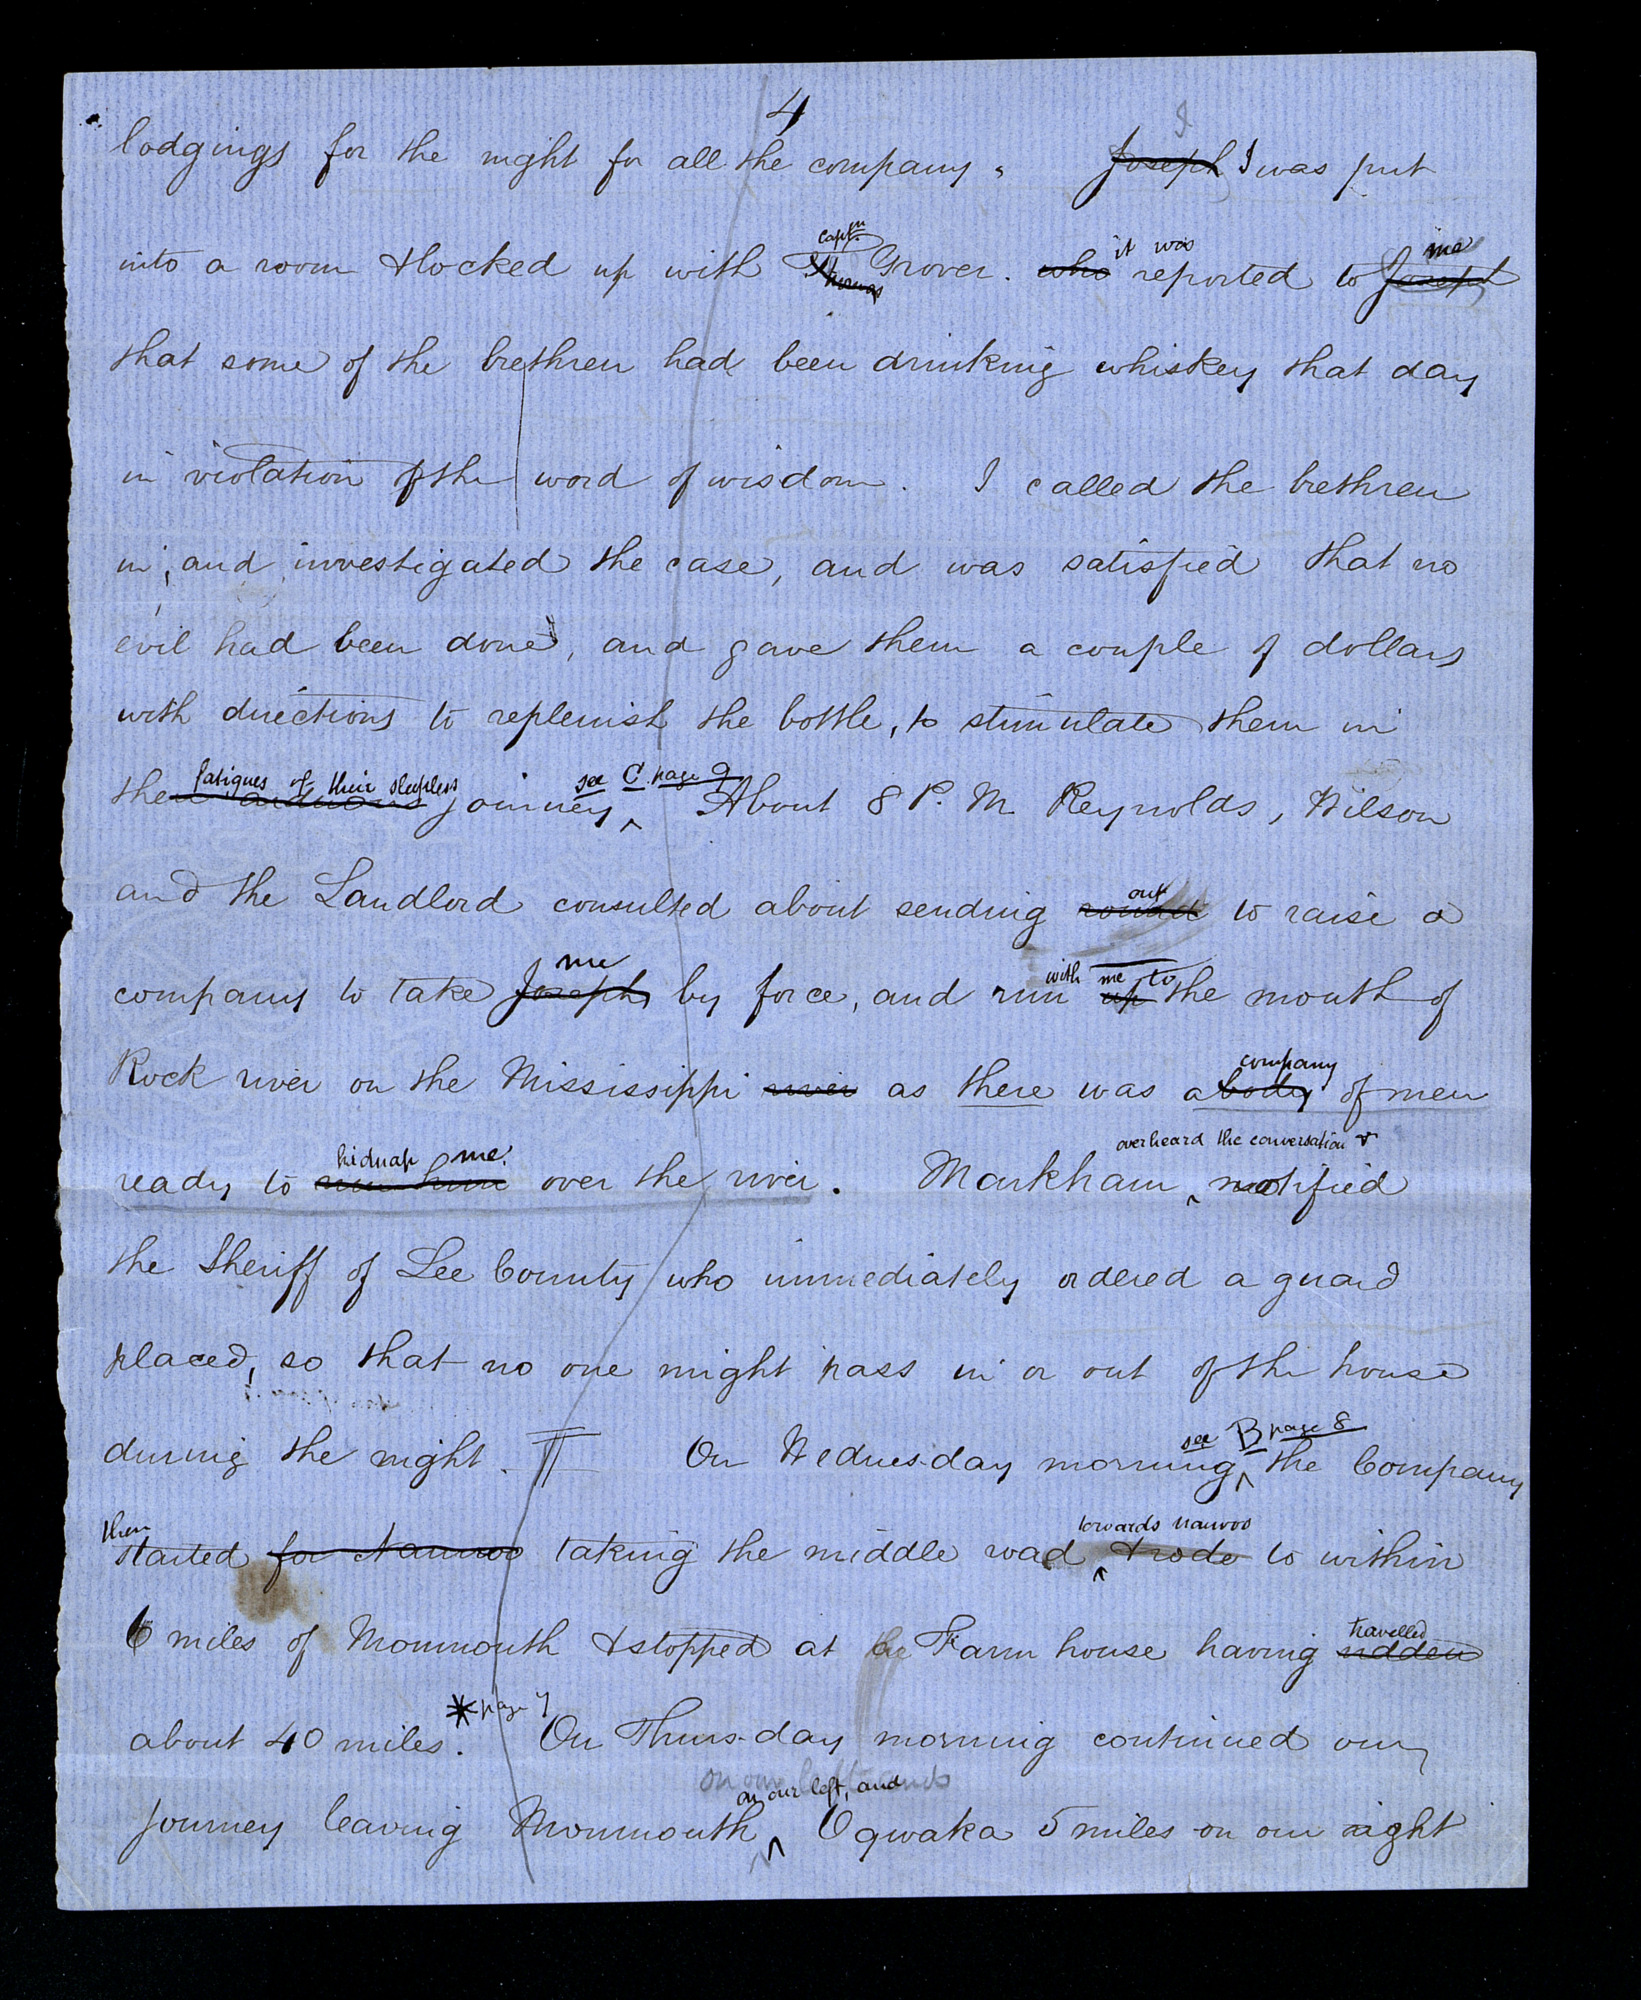 4
I
lodgings for the night for all the company. Joseph I was put
captn it was me
into a room & locked up with Thomas Grover. who reported to Joseph
that some of the brethren had been drinking whiskey that day
in violation of the word of wisdom. I called the brethren
in, and investigated the case, and was satisfied that no
evil had been done, and gave them a couple of dollars
with directions to replenish the bottle, to stimulate them in
fatigues of their sleepless see C. page 9
their arduous journey ^ About 8 P. M. Reynolds, Wilson
out
and the Landlord consulted about sending round to raise a
me with me to
company to take Joseph by force, and run up the mouth of
company
Rock river on the Mississippi river as there was a body of men
kidnap me. overheard the conversation &
ready to run him over the river. Markham ^ notified
the Sheriff of Lee County who immediately ordered a guard
placed, so that no one might pass in or out of the house
see B page 8
during the night. ¶ On Wednesday morning ^ the Company
then towards Nauvoo
started for Nauvoo taking the middle road ^ & rode to within
travelled
6 miles of Monmouth & stopped at the Farm house having ridden
* page 7
about 40 miles. On Thursday morning continued our
on our left and
on our left, and
journey leaving Monmouth ^ Oqwaka 5 miles on our right